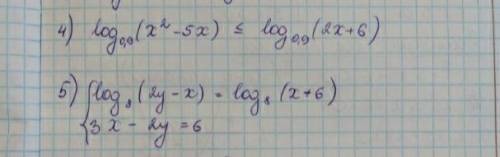 4) log₀,₉(x² - 5x) ≤ log₀,₉(2x+6)
5) { log₈(2y - x) = log₈(x+6)
3x - 2y = 6